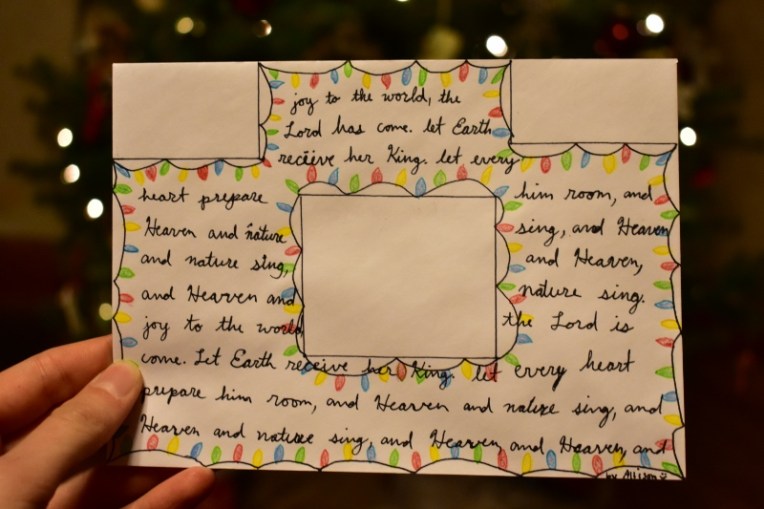 joy to the world, the
Lord has come. let Earth
receive her King. let every
heart prepare him room, and
Heaven and nature sing, and Heaven
and nature sing, and Heaven,
and Heaven and nature sing.
joy to the world the Lord is
come. Let Earth receive her King. let every heart
prepare him room, and Heaven and nature sing, and
Heaven and nature sing, and Heaven, and Heaven, and
by Allison